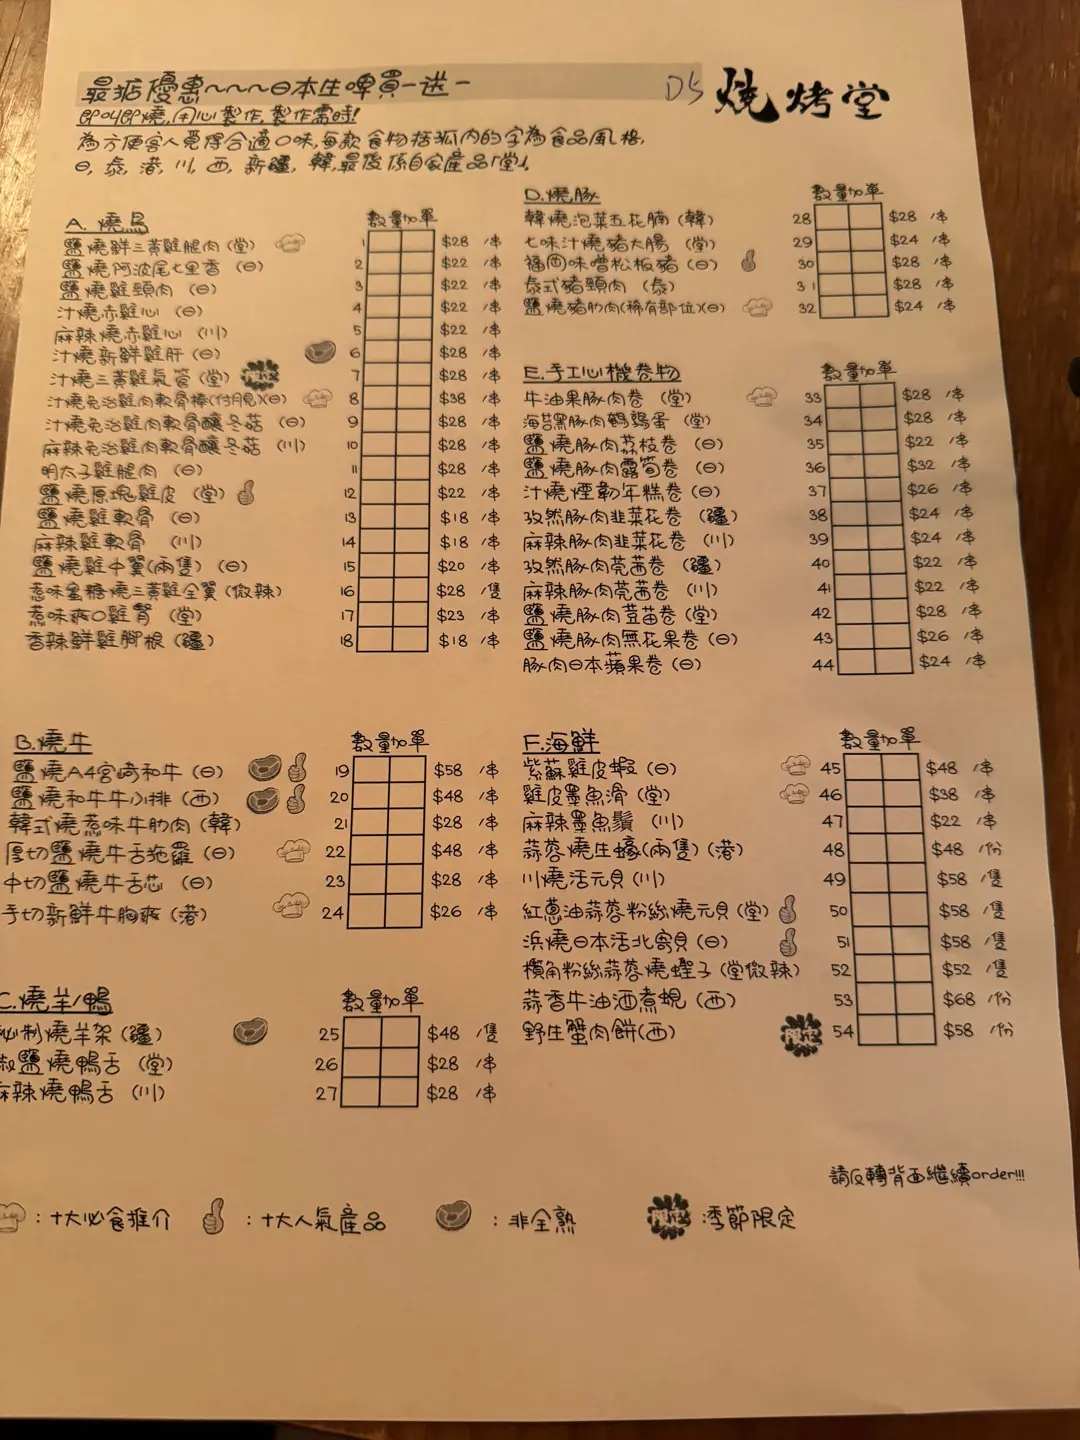 最抵優惠~~~日本生啤買一送一
D5 燒烤堂
即叫即燒,用心製作,製作需時!
為方便客人覓得合適口味,每款食物括弧內的字為食品風格,
日, 泰, 港, 川, 西, 新疆, 韓,最後係自家產品「堂」
A. 燒鳥 數量加單
鹽燒鮮三黃雞腿肉 (堂) 1 $28 /串
鹽燒阿波尾七里香 (日) 2 $22 /串
鹽燒雞頸肉 (日) 3 $22 /串
汁燒赤雞心 (日) 4 $22 /串
麻辣燒赤雞心 (川) 5 $22 /串
汁燒新鮮雞肝 (日) 6 $28 /串
汁燒三黃雞氣管 (堂) 限定 7 $28 /串
汁燒免治雞肉軟骨棒(付月見)(日) 8 $38 /串
汁燒免治雞肉軟骨釀冬菇 (日) 9 $28 /串
麻辣免治雞肉軟骨釀冬菇 (川) 10 $28 /串
明太子雞腿肉 (日) 11 $28 /串
鹽燒原塊雞皮 (堂) 12 $22 /串
鹽燒雞軟骨 (日) 13 $18 /串
麻辣雞軟骨 (川) 14 $18 /串
鹽燒雞中翼(兩隻) (日) 15 $20 /串
惹味蜜糖燒三黃雞全翼 (微辣) 16 $28 /隻
惹味爽口雞腎 (堂) 17 $23 /串
香辣鮮雞腳根 (疆) 18 $18 /串
B.燒牛 數量加單
鹽燒A4宮崎和牛 (日) 19 $58 /串
鹽燒和牛牛小排 (西) 20 $48 /串
韓式燒惹味牛肋肉 (韓) 21 $28 /串
厚切鹽燒牛舌拖羅 (日) 22 $48 /串
中切鹽燒牛舌芯 (日) 23 $28 /串
手切新鮮牛胸爽 (港) 24 $26 /串
C.燒羊/鴨 數量加單
秘制燒羊架 (疆) 25 $48 /隻
椒鹽燒鴨舌 (堂) 26 $28 /串
麻辣燒鴨舌 (川) 27 $28 /串
D.燒豚 數量加單
韓燒泡菜五花腩 (韓) 28 $28 /串
七味汁燒豬大腸 (堂) 29 $24 /串
福岡味噌松板豬 (日) 30 $28 /串
泰式豬頸肉 (泰) 31 $28 /串
鹽燒豬肋肉(稀有部位)(日) 32 $24 /串
E.手工心機卷物 數量加單
牛油果豚肉卷 (堂) 33 $28 /串
海苔黑豚肉鵪鶉蛋 (堂) 34 $28 /串
鹽燒豚肉荔枝卷 (日) 35 $22 /串
鹽燒豚肉露筍卷 (日) 36 $32 /串
汁燒煙韌年糕卷 (日) 37 $26 /串
孜然豚肉韭菜花卷 (疆) 38 $24 /串
麻辣豚肉韭菜花卷 (川) 39 $24 /串
孜然豚肉莞茜卷 (疆) 40 $22 /串
麻辣豚肉莞茜卷 (川) 41 $22 /串
鹽燒豚肉荳苗卷 (堂) 42 $28 /串
鹽燒豚肉無花果卷 (日) 43 $26 /串
豚肉日本蘋果卷 (日) 44 $24 /串
F.海鮮 數量加單
紫蘇雞皮蝦 (日) 45 $48 /串
雞皮墨魚滑 (堂) 46 $38 /串
麻辣墨魚鬚 (川) 47 $22 /串
蒜蓉燒生蠔(兩隻) (港) 48 $48 /份
川燒活元貝 (川) 49 $58 /隻
紅蔥油蒜蓉粉絲燒元貝 (堂) 50 $58 /隻
浜燒日本活北寄貝 (日) 51 $58 /隻
欖角粉絲蒜蓉燒蟶子 (堂微辣) 52 $52 /隻
蒜香牛油酒煮蜆 (西) 53 $68 /份
野生蟹肉餅(西) 限定 54 $58 /份
請反轉背面繼續order!!!
:十大必食推介 :十大人氣產品 :非全熟 限定 :季節限定